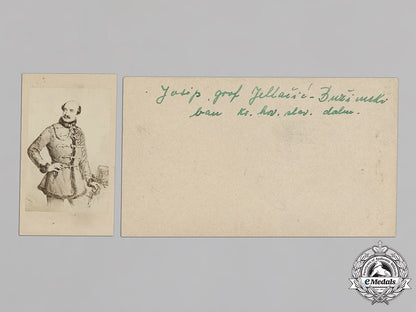 Josip grof Jellačić-Bužimski
ban kr. hrv. slav. dalm.
eMedals